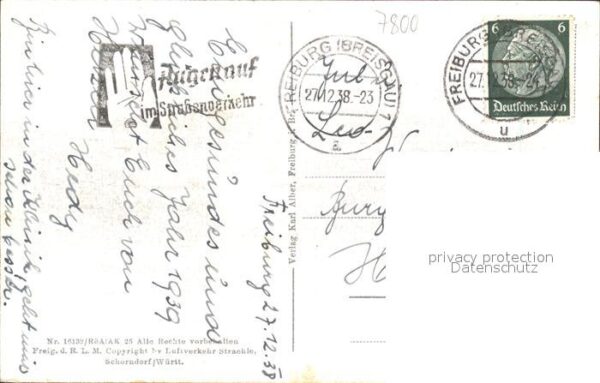 7800
Augen auf
im Straßenverkehr
FREIBURG (BREISGAU) 1
27.12.38.-23
a
FREIBURG (BREISGAU)
27.12.38.-24
u
6 6
Deutsches Reich
Ein gesundes und
glückliches Jahr 1939
wünscht Euch von
Herzen
Hedy
Bin hier in der Klinik, geht uns
schon besser.
Freiburg 27.12.38
Verlag Karl Alber, Freiburg i. Br.
Nr. 16133/R6A/AK 25 Alle Rechte vorbehalten
Freig. d. R. L. M. Copyright by Luftverkehr Straehle,
Schorndorf/Württ.
privacy protection
Datenschutz